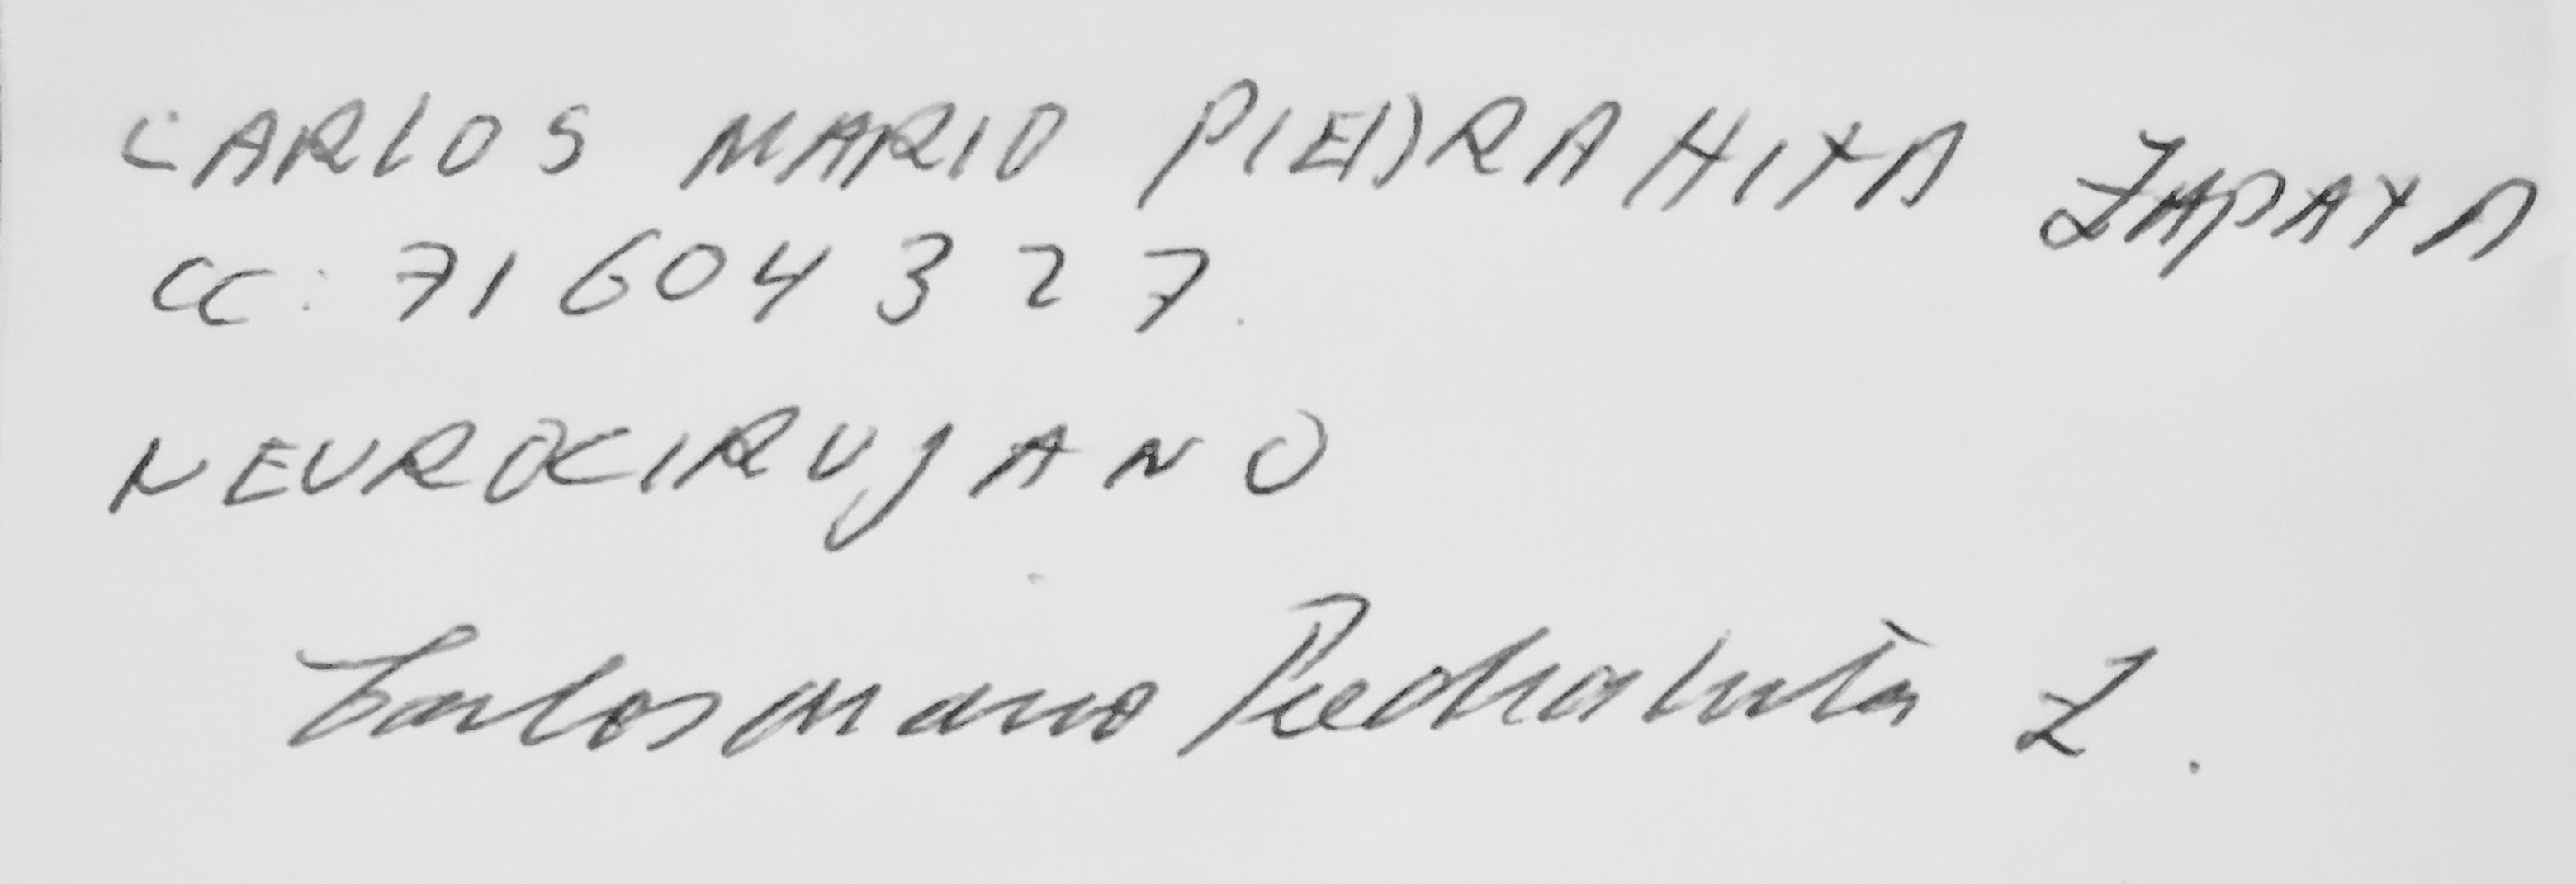 CARLOS MARIO PIEDRAHITA ZAPATA
CC: 71604327.
NEUROCIRUJANO
Carlos Mario Piedrahita Z.